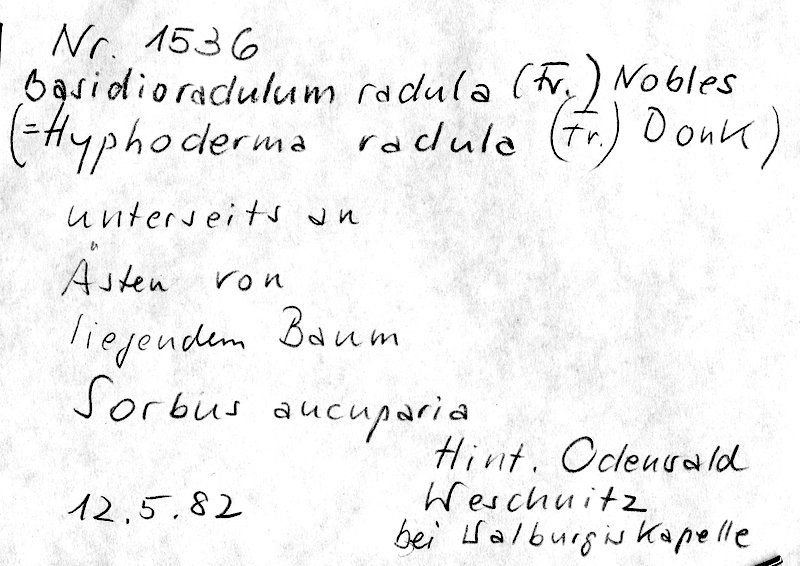 Nr. 1536
Basidioradulum radula (Fr.) Nobles
(=Hyphoderma radula (Fr.) Donk)
unterseits an
Ästen von
liegendem Baum
Sorbus aucuparia
Hint. Odenwald
12.5.82 Weschnitz
bei Walburgiskapelle